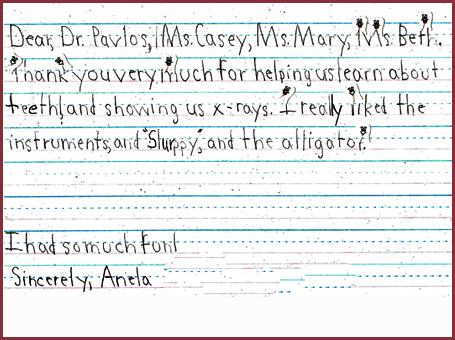 Dear, Dr. Pavlos, Ms. Casey, Ms. Mary, Ms. Beth.
Thank you very Much for helping us learn about
teeth! and showing us x-rays. I really liked the
instruments, and "Sluppy", and the alligator!
I had so much Fun!
Sincerely, Anela